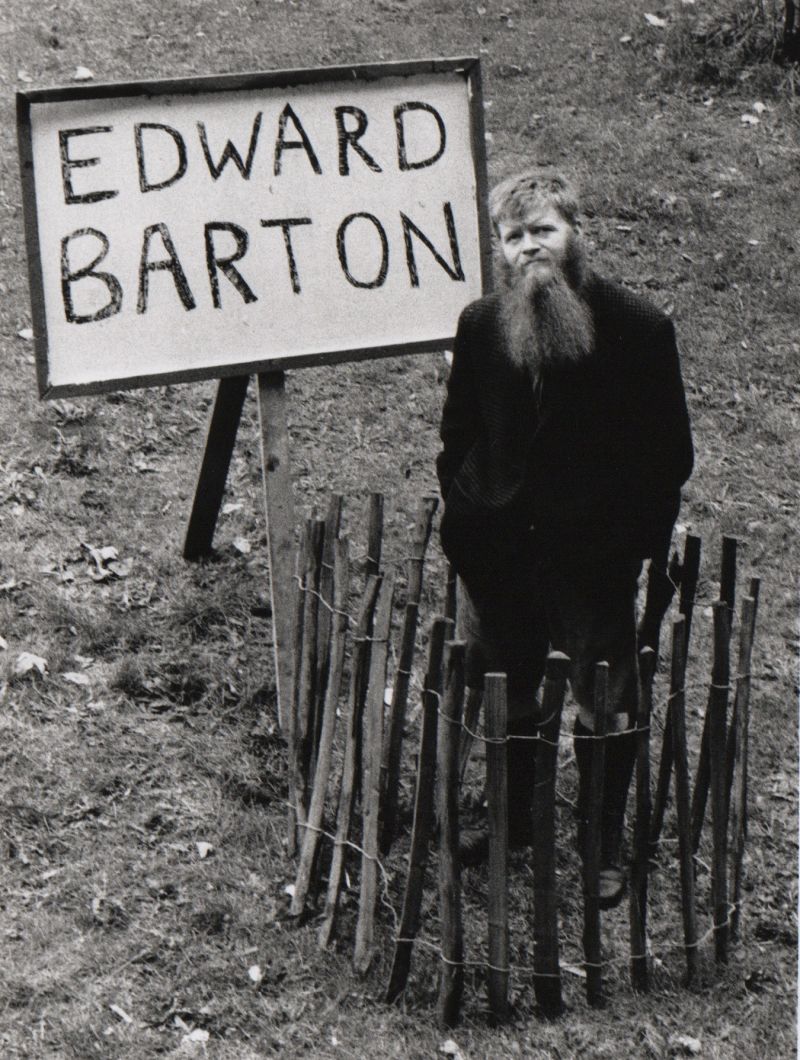 EDWARD
BARTON